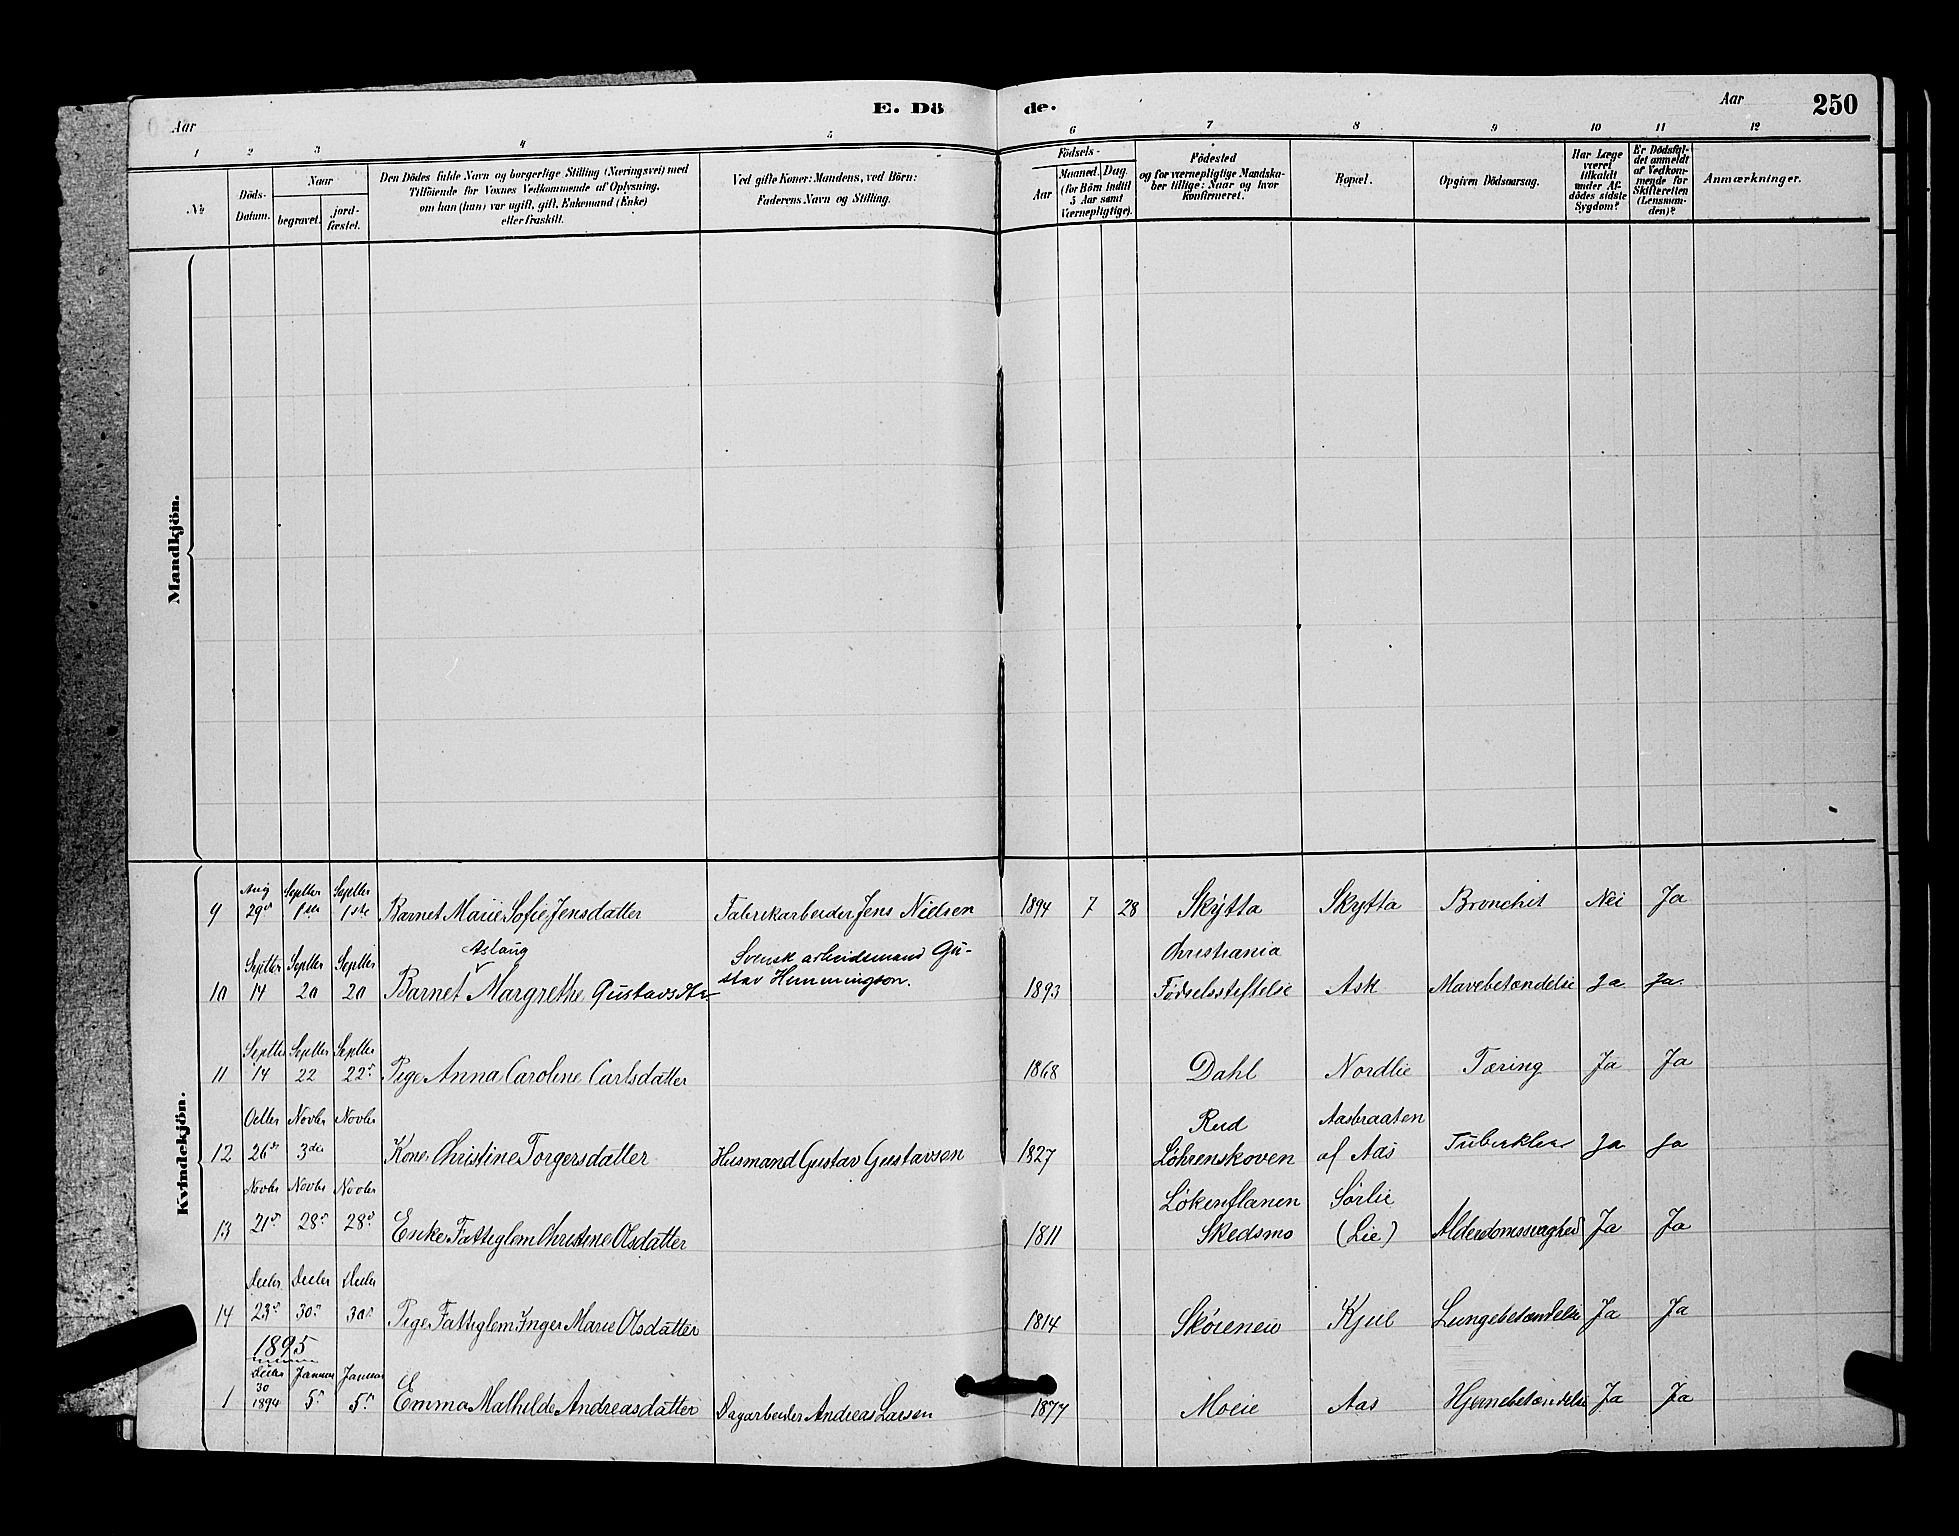 Aar E. Dö de. Aar 250
1 2 3 4 5 6 7 8 9 10 11 12
№
Döds-
Datum.
Naar
begravet.
jord-
fæstet.
Den Dödes fulde Navn og borgerlige Stilling (Næringsvei) med
Tilföiende for Voxnes Vedkommende af Oplysning,
om han (hun) var ugift, gift, Enkemand (Enke)
eller fraskilt.
Ved gifte Koner: Mandens, ved Börn:
Faderens Navn og Stilling.
Födsels-
Aar
Maaned. Dag
(for Börn indtil
5 Aar samt
Værnepligtige).
Födested
og for værnepligtige Mandska-
ber tillige: Naar og hvor
konfirmeret.
Bopæl.
Opgiven Dödsaarsag.
Har Læge
været
tilkaldt
under Af-
dödes sidste
Sygdom?
Er Dödsfal-
det anmeldt
af Vedkom-
mende for
Skifteretten
(Lensman-
den)?
Anmærkninger.
Mandkjön.
Kvindekjön.
Aug Septbr Septbr
9 29de 1ste 1ste Barnet Marie Sofie Jensdatter Fabrikarbeider Jens Nielsen 1894 7 28 Skytta Skytta Bronchit Nei Ja
Septbr Septbr Septbr Aslaug Svensk arbeidsmand Gu- Christiania
10 14 20 20 Barnet Margrethe Gustavsdtr stav Hemmingson. 1893 Fødselsstiftelse Ask Mavebetændelse Ja Ja.
Septbr Septbr Septbr
11 14 22 22de Pige Anna Caroline Carlsdatter 1868 Dahl Nordlie Tæring Ja Ja
Octbr Novbr Novbr Rud Aasbraaten
12 26de 3die Kone Christine Torgersdatter Husmand Gustav Gustavsen 1827 Løhrenskoven af Aas Ja Ja
Novbr Novbr Novbr Sørlie
13 21de 28de 28de Enke Fattiglem Christine Olsdatter 1811 Skedsmo (Lie) Alderdomssvaghed Ja Ja
Decbr Decbr Decbr
14 23de 30te 30te Pige Fattiglem Inger Marie Olsdatter 1814 Kjul Lungebetændelse Ja Ja
1895
Decbr Januar Januar
30
1 1894 5te 5te Emma Mathilde Andreasdatter Dagarbeider Andreas Larsen 1877 Moeie Aas Hjernebetændelse Ja Ja